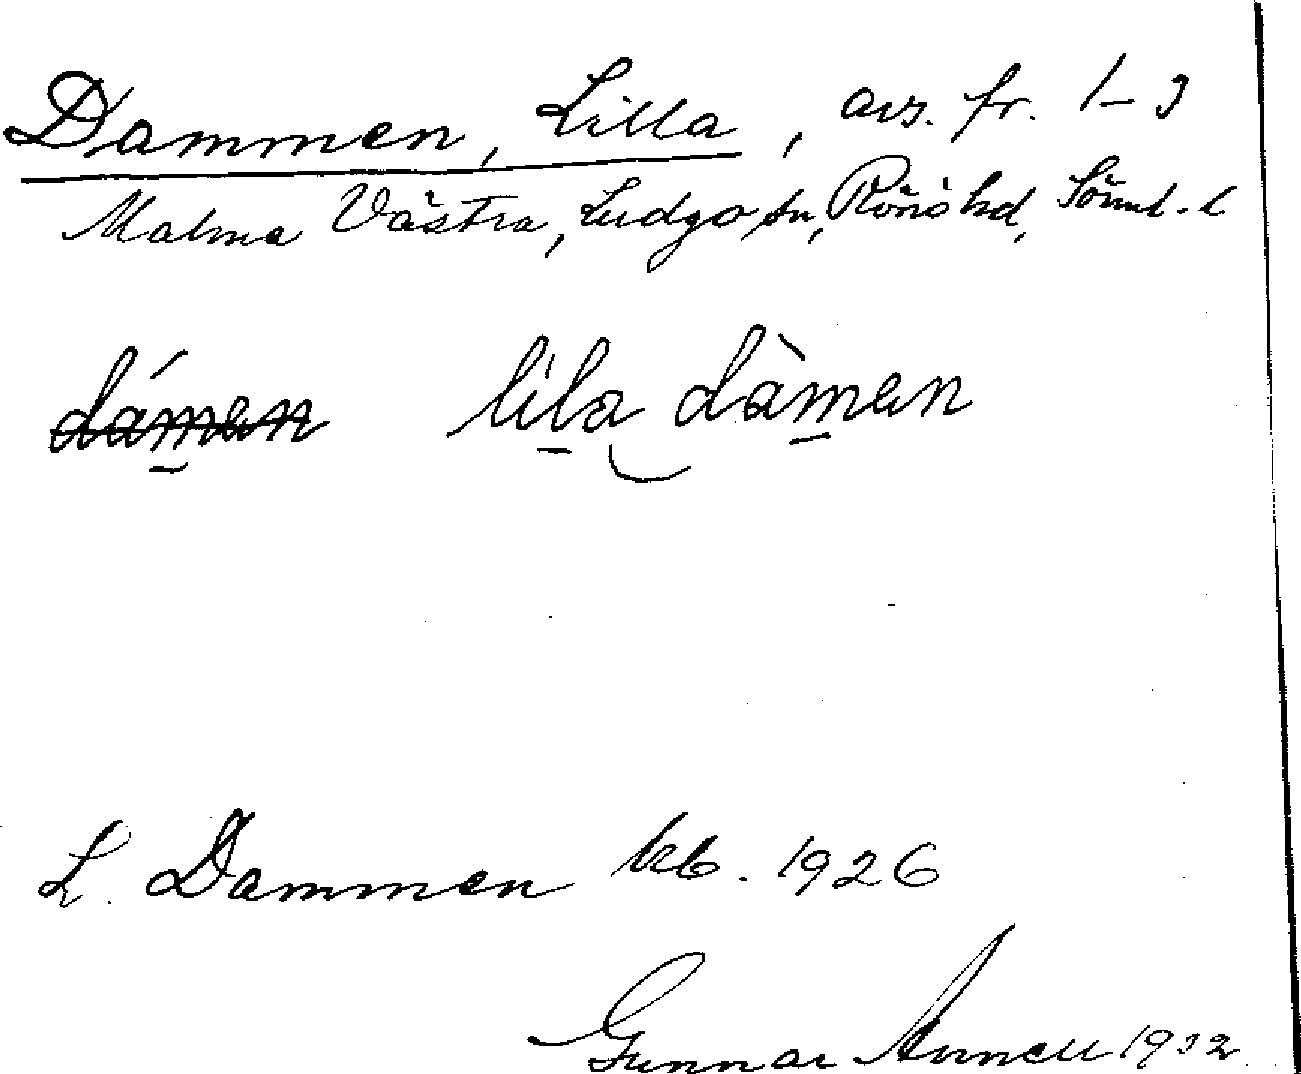 Dammen, Lilla, avs. fr. 1-3
Malma Västra, Ludgo sn, Rönö hd, Söml. l
dámen lila dàmen
L. Dammen kb. 1926
Gunnar Annell 1932